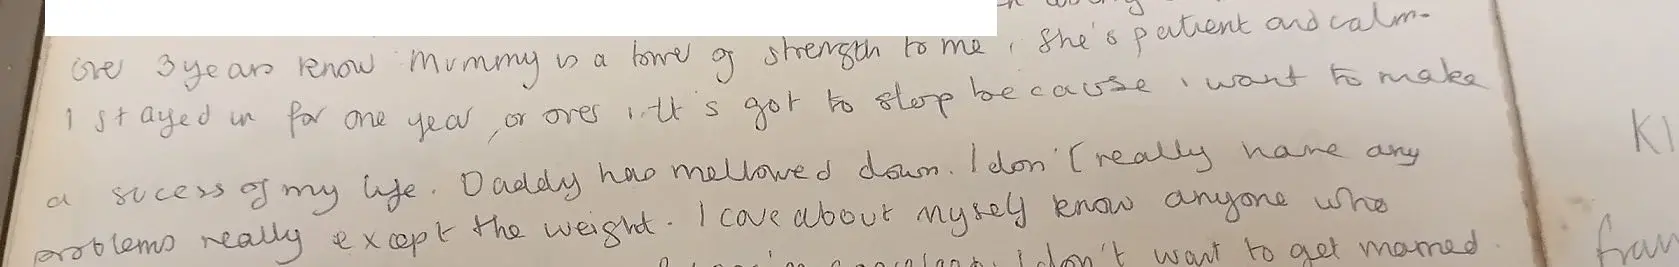 over 3 years know Mummy is a towe of strength to me, She's patient and calm-
I stayed in for one year, or over. It's got to stop because i want to make
a sucess of my life. Daddy has mellowed down. I don't really have any
problems really except the weight. I care about myself know anyone who
I don't want to get married
KI
fran